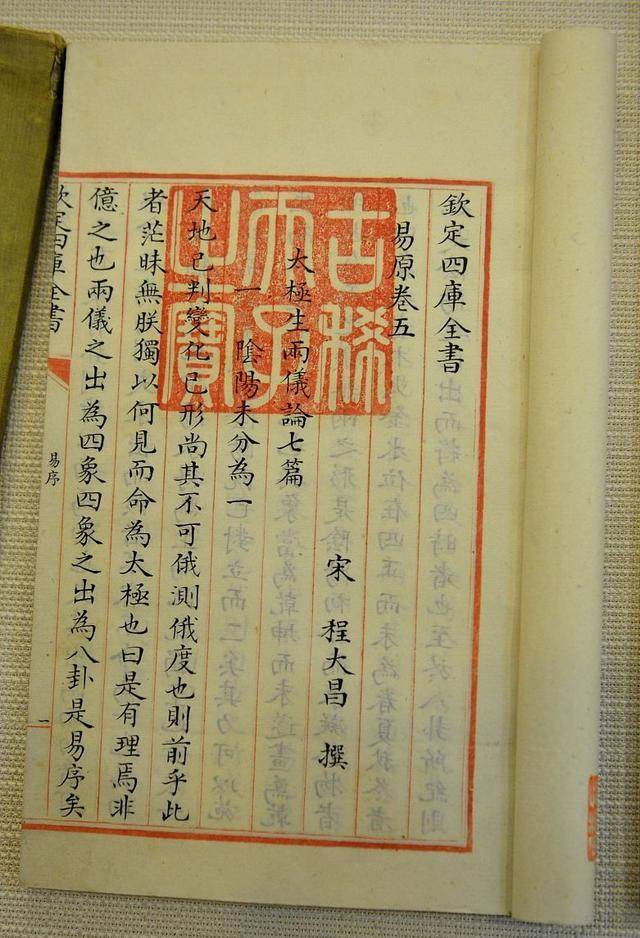 欽定四庫全書
易原卷五
宋 程大昌 撰
太極生兩儀論七篇
一 陰陽未分為一
天地已判變化已形尚其不可俄測俄度也則前乎此
者茫昧無朕獨以何見而命為太極也曰是有理焉非
億之也兩儀之出為四象四象之出為八卦是易序矣
欽定四庫全書
易序
一
古稀天子之寶